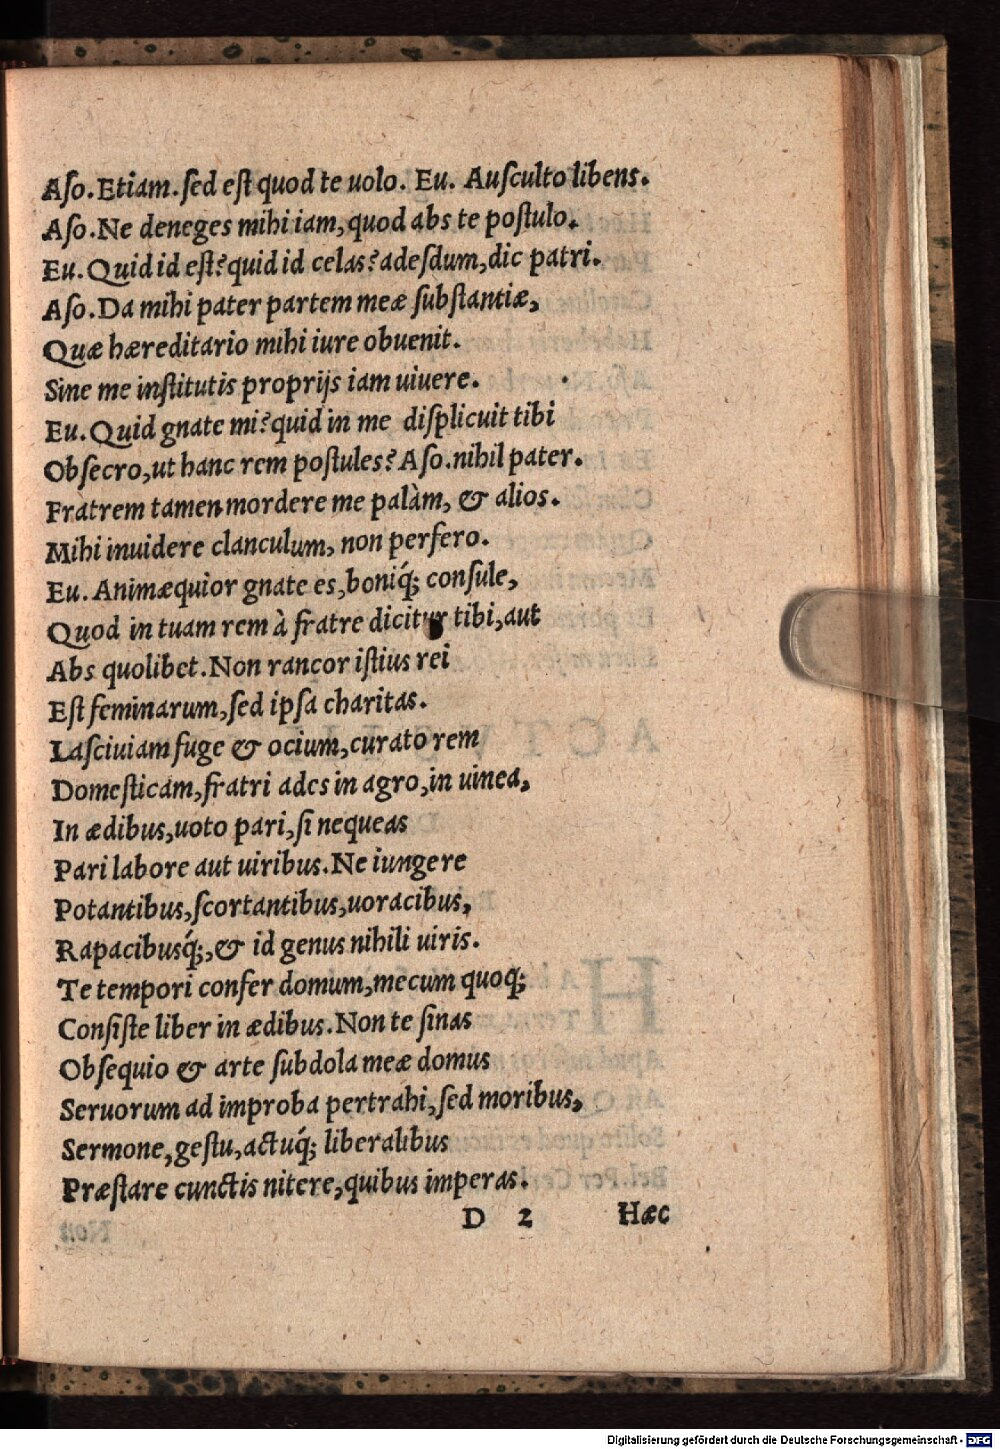 Aſo. Etiam. ſed eſt quod te uolo. Eu. Auſculto libens.
Aſo. Ne deneges mihi iam, quod abs te poſtulo.
Eu. Quid id eſt? quid id celas? adeſdum, dic patri.
Aſo. Da mihi pater partem meæ ſubſtantiæ,
Quæ hæreditario mihi iure obuenit.
Sine me inſtitutis proprijs iam uiuere.
Eu. Quid gnate mi? quid in me diſplicuit tibi
Obſecro, ut hanc rem poſtules? Aſo. nihil pater.
Fratrem tamen mordere me palàm, & alios.
Mihi inuidere clanculum, non perfero.
Eu. Animæquior gnate es, boniq́; conſule,
Quod in tuam rem à fratre dicitur tibi, aut
Abs quolibet. Non rancor iſtius rei
Eſt feminarum, ſed ipſa charitas.
Laſciuiam fuge & ocium, curato rem
Domeſticam, fratri ades in agro, in uinea,
In ædibus, uoto pari, ſi nequeas
Pari labore aut uiribus. Ne iungere
Potantibus, ſcortantibus, uoracibus,
Rapacibusq́;, & id genus nihili uiris.
Te tempori confer domum, mecum quoq;
Conſiſte liber in ædibus. Non te ſinas
Obſequio & arte ſubdola meæ domus
Seruorum ad improba pertrahi, ſed moribus,
Sermone, geſtu, actuq́; liberalibus
Præſtare cunctis nitere, quibus imperas.
D 2 Hæc
Digitalisierung gefördert durch die Deutsche Forschungsgemeinschaft - DFG